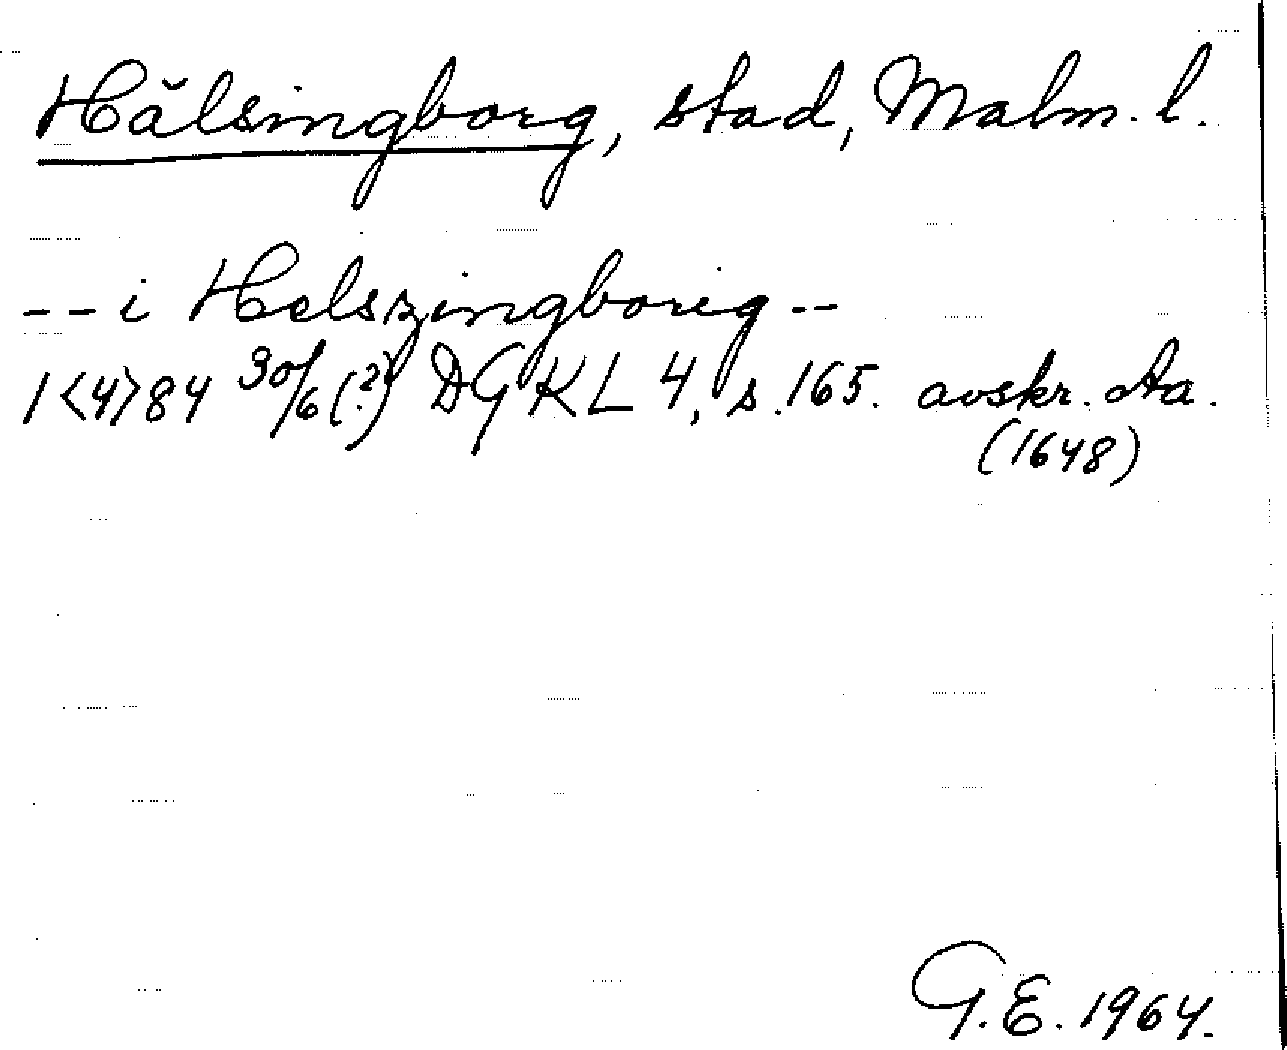 Hälsingborg, stad, Malm. l.
-- i Helszingborig --
1<4>84 30/6 (?) DGKL 4, s. 165. avskr. Aa.
(1648)
G.E. 1964.